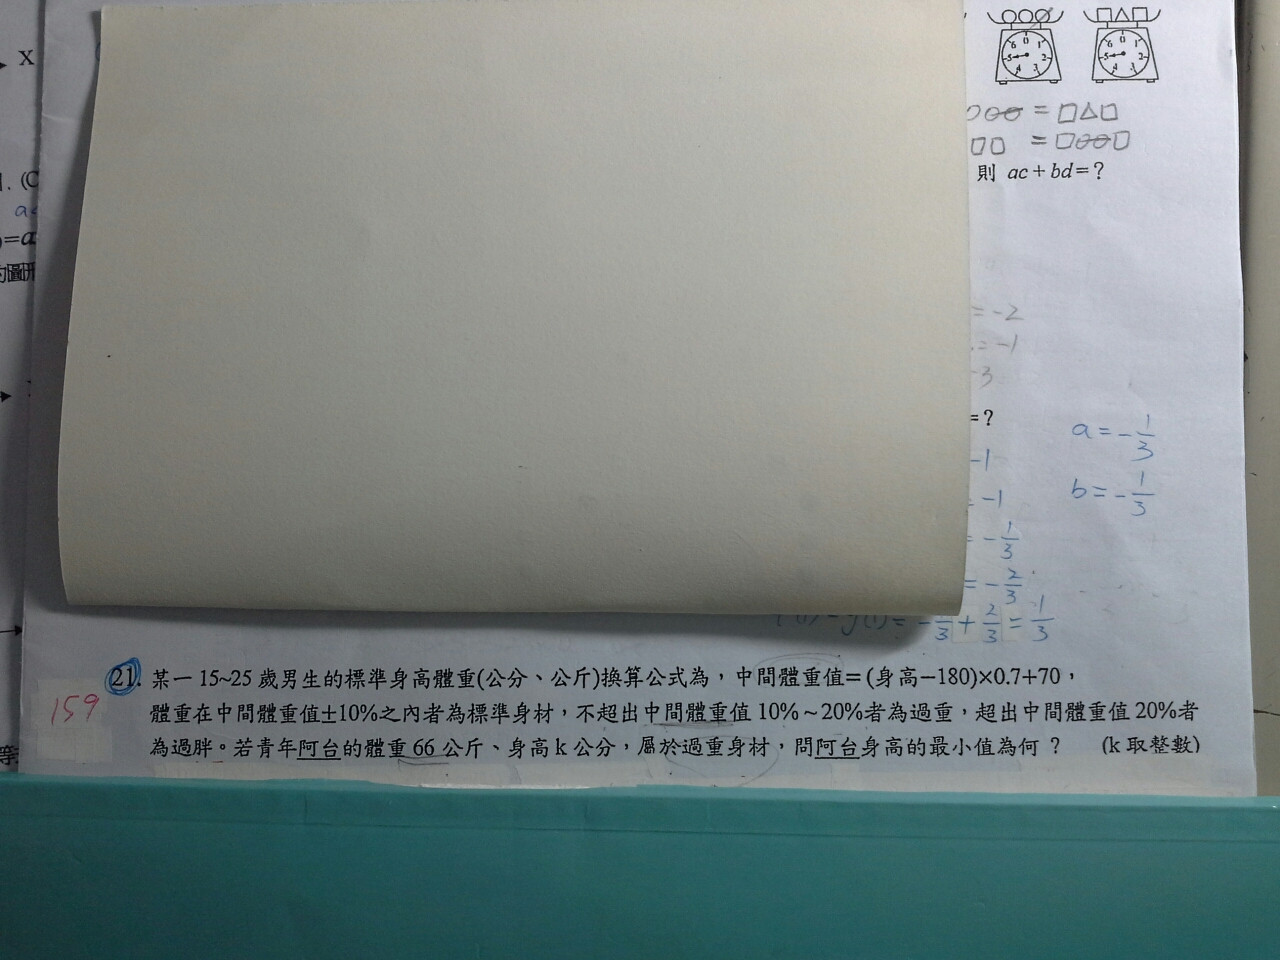 X
○○○ = □△□
□□ = □○○□
則 ac+bd=?
=-2
=-1
-3
=?
a=-1/3
-1
b=-1/3
=-1
=-1/3
=-2/3
-1/3+2/3=1/3
21. 某一 15~25 歲男生的標準身高體重(公分、公斤)換算公式為，中間體重值=(身高-180)×0.7+70，
159
體重在中間體重值±10%之內者為標準身材，不超出中間體重值 10%~20%者為過重，超出中間體重值 20%者
為過胖。若青年阿台的體重 66 公斤、身高 k 公分，屬於過重身材，問阿台身高的最小值為何？ (k 取整數)